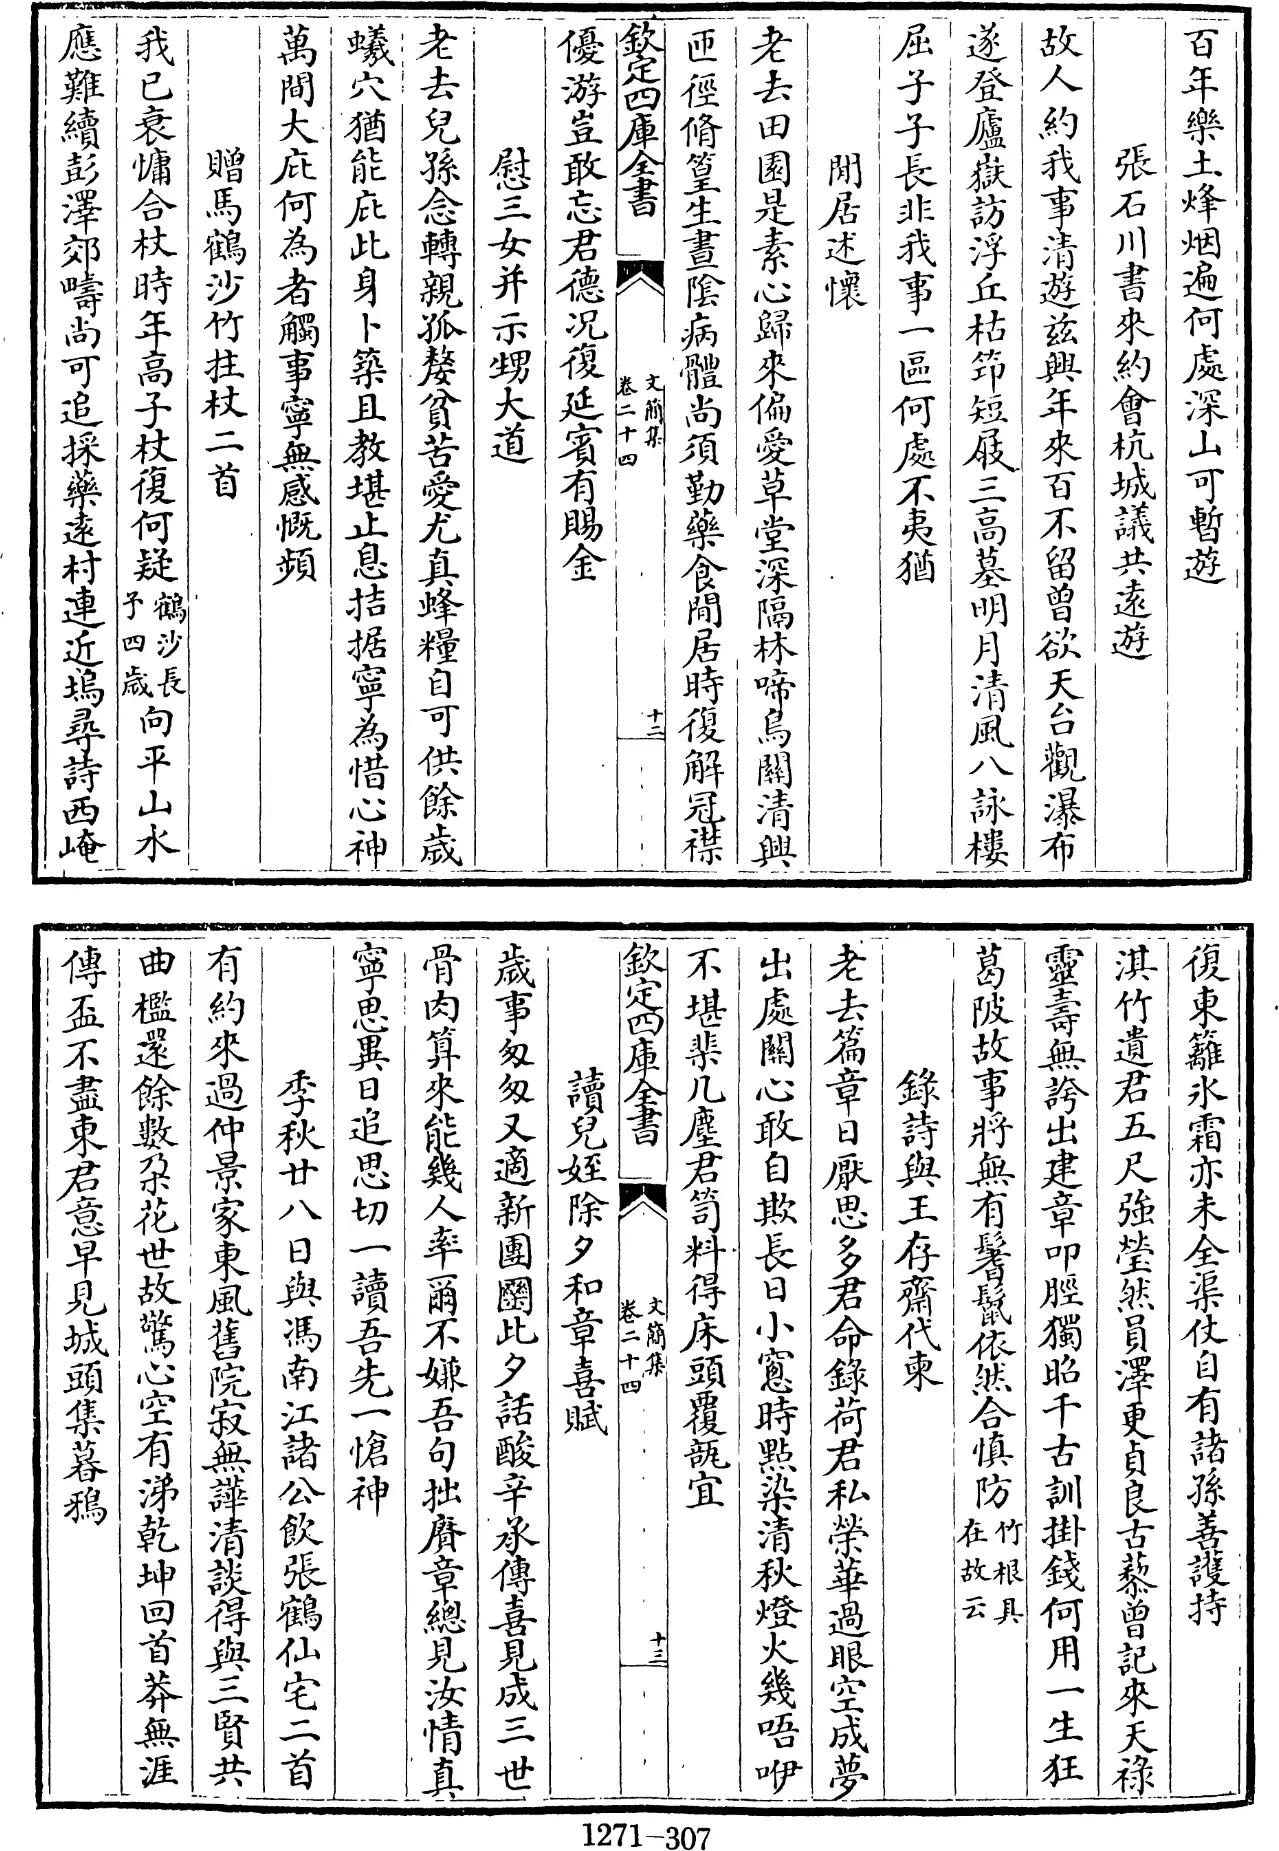 百年樂土烽烟遍何處深山可暫遊
張石川書來約會杭城議共遠遊
故人約我事清遊兹興年來百不留曾欲天台觀瀑布
遂登廬嶽訪浮丘枯笻短屐三高墓明月清風八詠樓
屈子子長非我事一區何處不夷猶
閒居述懷
老去田園是素心歸來偏愛草堂深隔林啼鳥關清興
匝徑脩篁生晝陰病體尚須勤藥食閒居時復解冠襟
欽定四庫全書
文簡集
卷二十四
十二
優游豈敢忘君德况復延賓有賜金
慰三女并示甥大道
老去兒孫念轉親孤嫠貧苦愛尤真蜂糧自可供餘歲
蟻穴猶能庇此身卜築且教堪止息拮据寧為惜心神
萬間大庇何為者觸事寧無感慨頻
贈馬鶴沙竹拄杖二首
我已衰慵合杖時年高子杖復何疑鶴沙長予四歲向平山水
應難續彭澤郊疇尚可追採藥遠村連近塢尋詩西崦
復東籬氷霜亦未全渠仗自有諸孫善護持
淇竹遺君五尺強瑩然員澤更貞良古藜曾記來天祿
靈壽無誇出建章叩脛獨昭千古訓掛錢何用一生狂
葛陂故事將無有鬈鬣依然合慎防竹根具在故云
錄詩與王存齋代柬
老去篇章日厭思多君命錄荷君私榮華過眼空成夢
出處關心敢自欺長日小窻時點染清秋燈火幾唔咿
不堪棐几塵君笥料得床頭覆瓿宜
欽定四庫全書
文簡集
卷二十四
十三
讀兒姪除夕和章喜賦
歲事匆匆又適新團圞此夕話酸辛承傳喜見成三世
骨肉算來能幾人率爾不嫌吾句拙賡章總見汝情真
寧思異日追思切一讀吾先一愴神
季秋廿八日與馮南江諸公飲張鶴仙宅二首
有約來過仲景家東風舊院寂無譁清談得與三賢共
曲檻還餘數朶花世故驚心空有涕乾坤回首莽無涯
傳盃不盡東君意早見城頭集暮鴉
1271-307